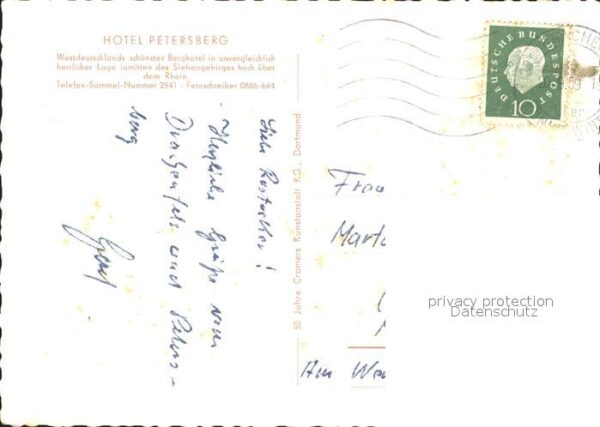 HOTEL PETERSBERG
Westdeutschlands schönstes Berghotel in unvergleichlich
herrlicher Lage inmitten des Siebengebirges hoch über
dem Rhein
Telefon-Sammel-Nummer 2541 - Fernschreiber 0886-644
Herzliche Grüße vom
Drachenfels und Peters-
berg
50 Jahre Cramers Kunstanstalt KG., Dortmund
DEUTSCHE BUNDESPOST
10
Frau
Marta
Am
privacy protection
Datenschutz